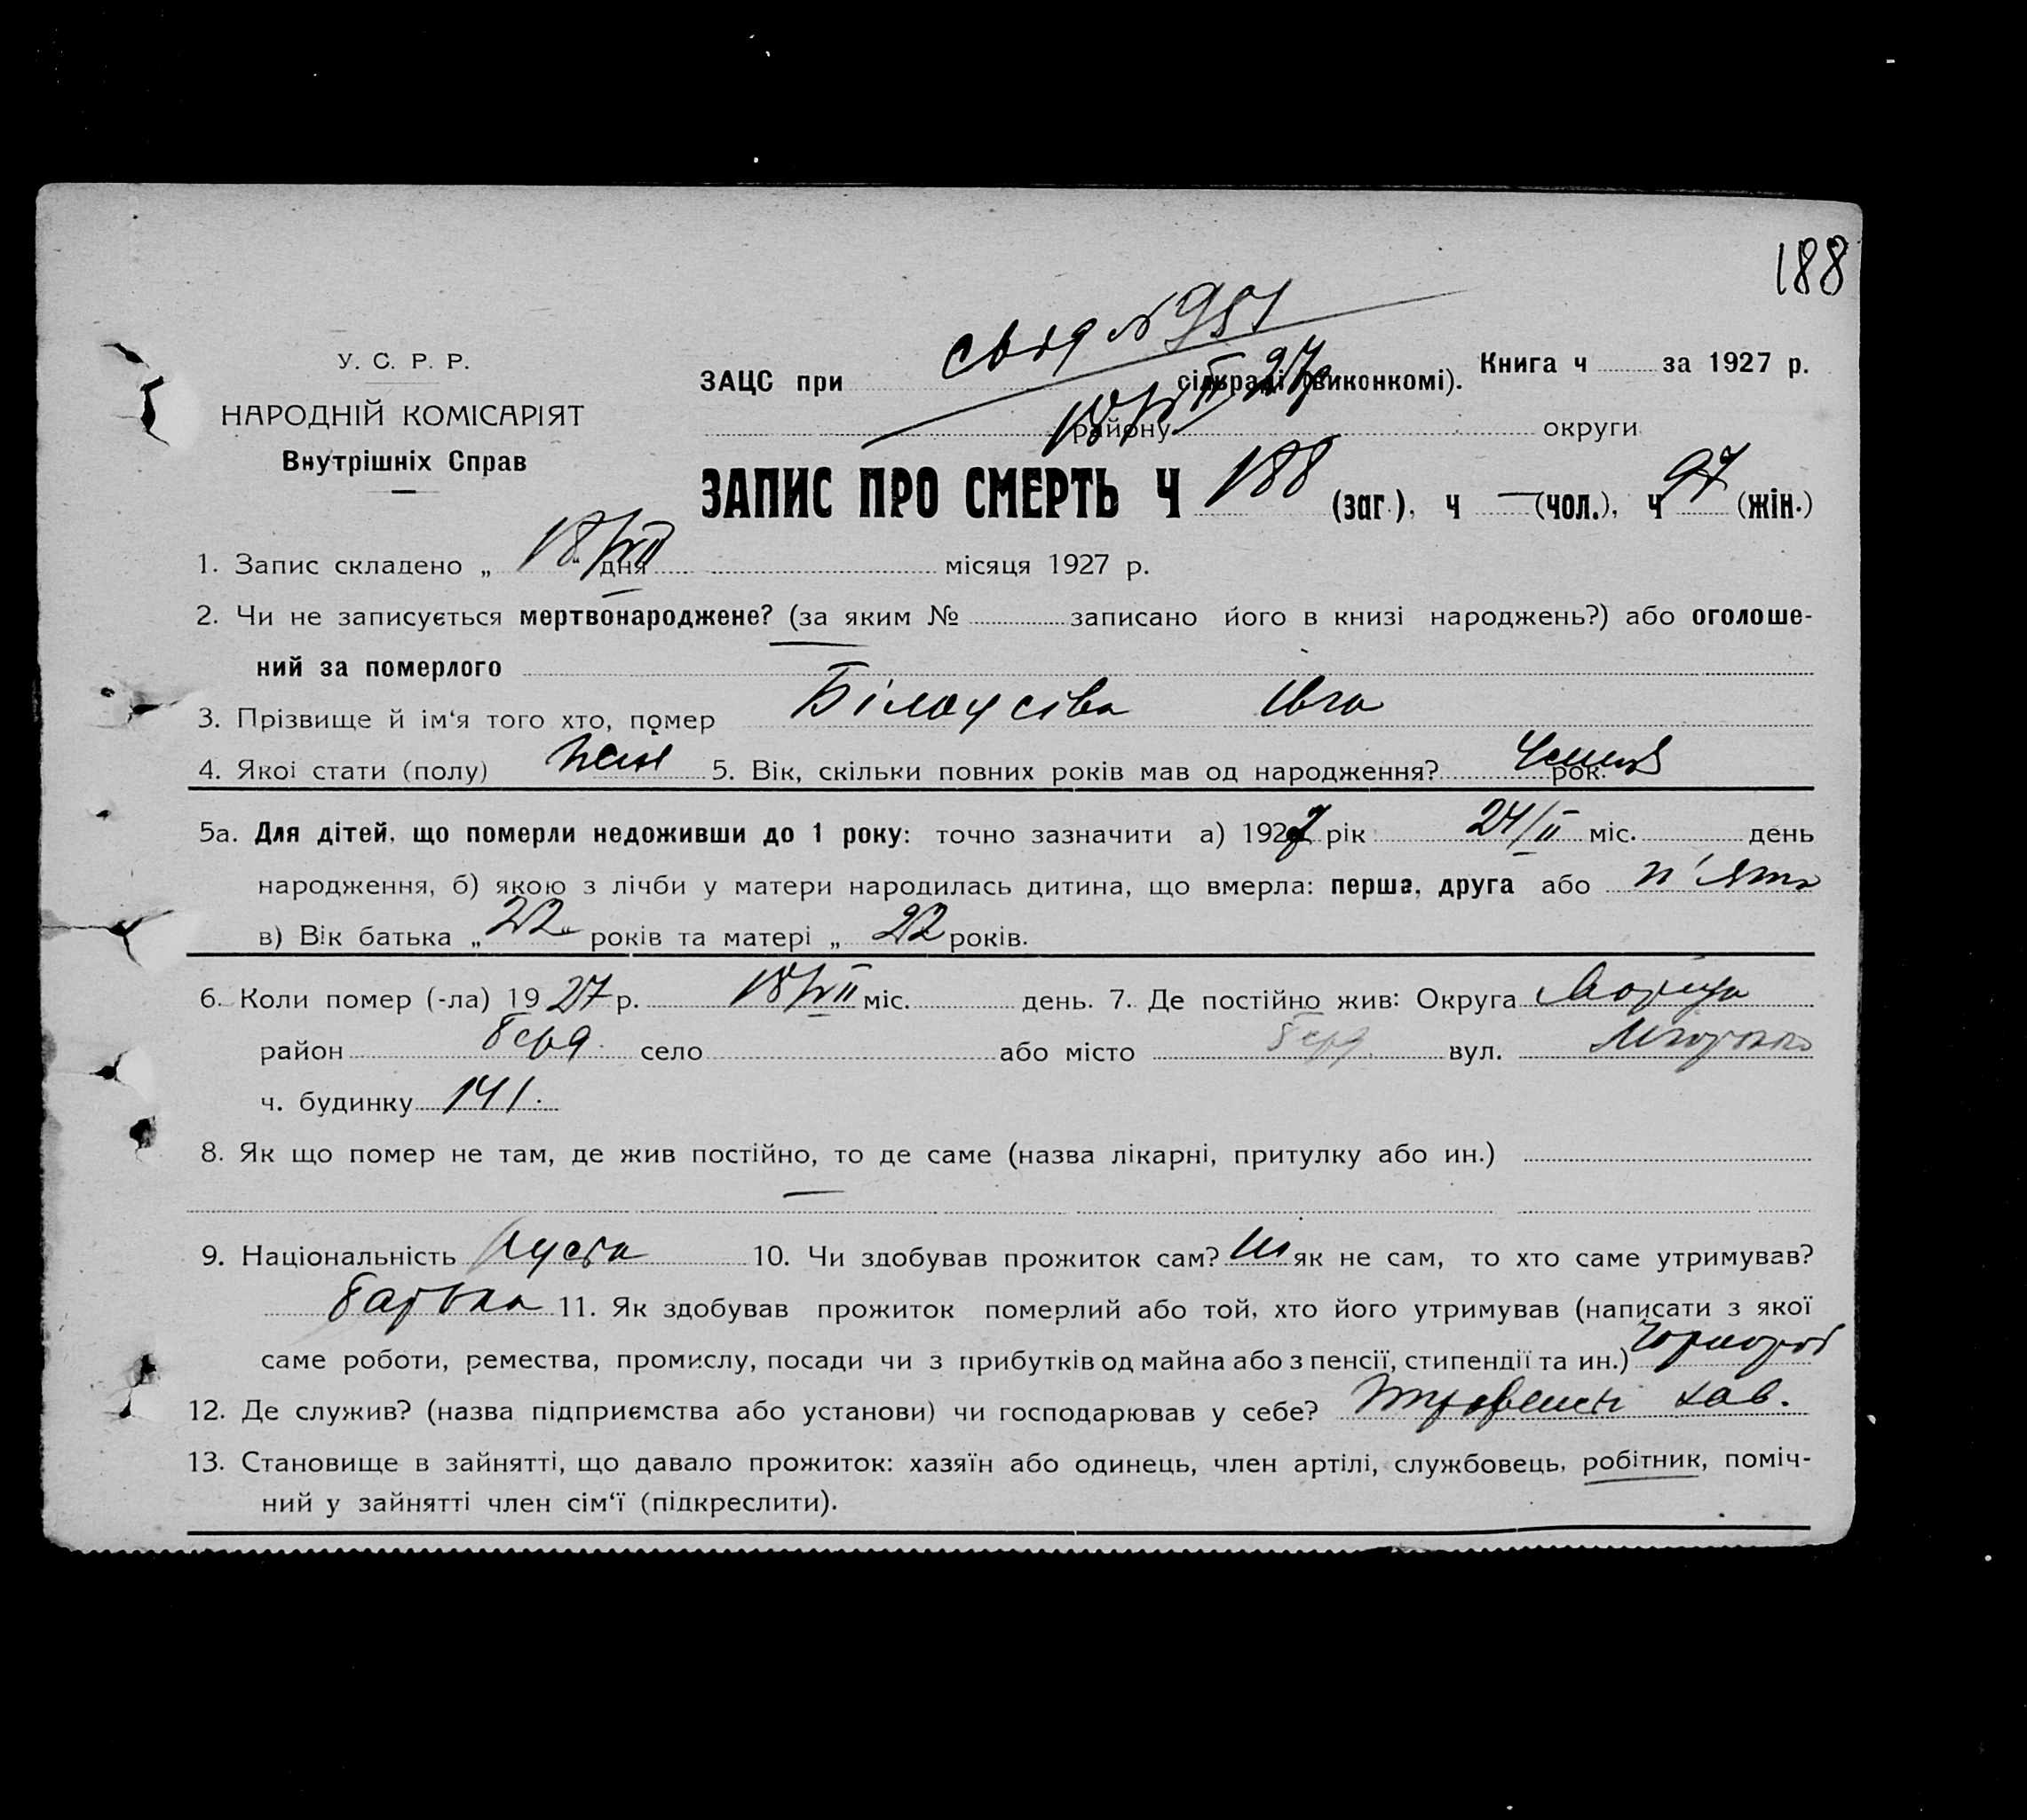 188
свід № 951
У. С. Р. Р.
НАРОДНІЙ КОМІСАРІЯТ
Внутрішніх Справ
ЗАЦС при сільраді (виконкомі). Книга ч за 1927 р.
18/VII 27р
району округи
ЗАПИС ПРО СМЕРТЬ Ч 188 (заг.), ч — (чол.), ч 97 (жін.)
1. Запис складено „ 18/VII " дня місяця 1927 р.
2. Чи не записується мертвонароджене? (за яким № записано його в книзі народжень?) або оголоше-
ний за померлого —
3. Прізвище й ім‘я того хто, помер Білоусіва
4. Якої стати (полу) жін 5. Вік, скільки повних років мав од народження? рок.
5а. Для дітей, що померли недоживши до 1 року: точно зазначити а) 1927 рік 24/II міс. день
народження, б) якою з лічби у матери народилась дитина, що вмерла: перша, друга або п'ята
в) Вік батька „ 22 " років та матері „ 22 років.
6. Коли помер (-ла) 1927 р. 18/VII міс. день. 7. Де постійно жив: Округа
район Берд. село або місто Берд. вул.
ч. будинку 141.
8. Як що помер не там, де жив постійно, то де саме (назва лікарні, притулку або ин.)
—
9. Національність руська 10. Чи здобував прожиток сам? Ні як не сам, то хто саме утримував?
батько 11. Як здобував прожиток померлий або той, хто його утримував (написати з якої
саме роботи, ремества, промислу, посади чи з прибутків од майна або з пенсії, стипендії та ин.) чорнороб
12. Де служив? (назва підприємства або установи) чи господарював у себе? зав.
13. Становище в зайнятті, що давало прожиток: хазяїн або одинець, член артілі, службовець, робітник, поміч-
ний у зайнятті член сім‘ї (підкреслити).